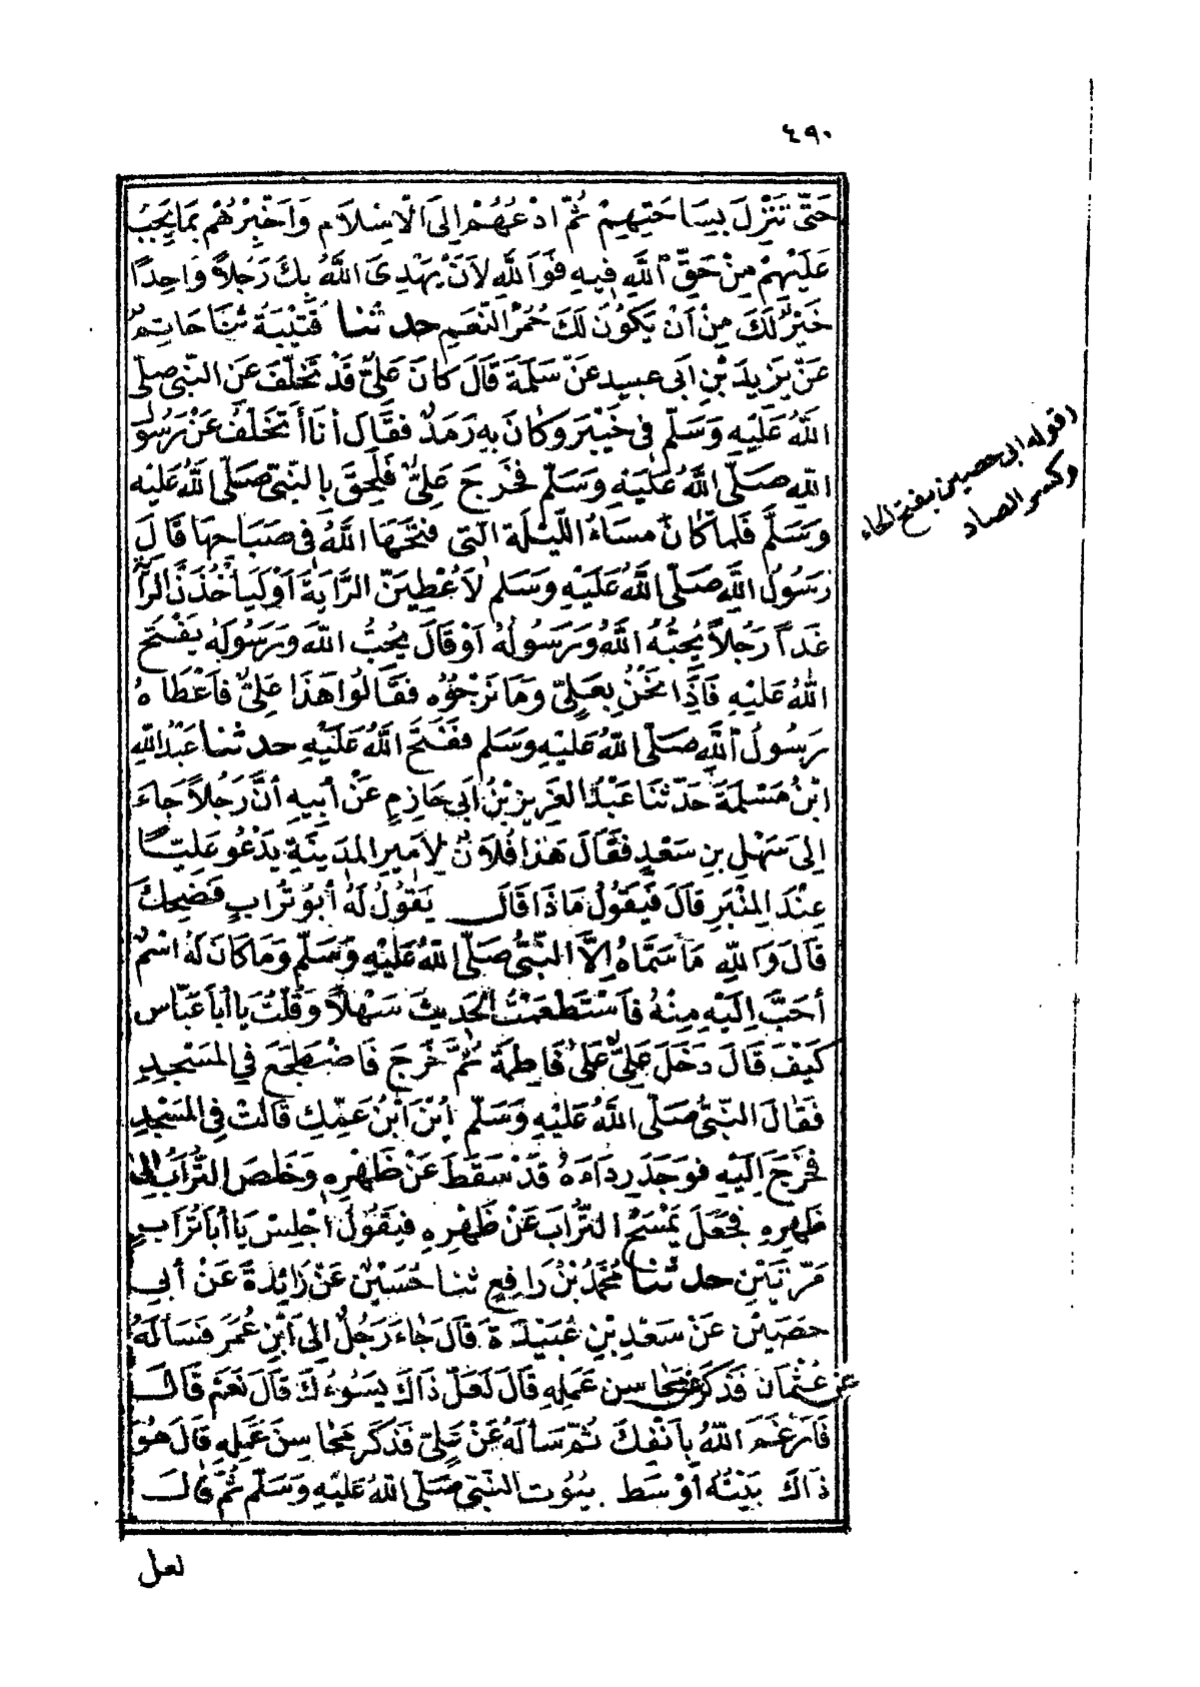 ٤٩٠
حَتَّى تَنْزِلَ بِسَاحَتِهِمْ ثُمَّ ادْعُهُمْ إِلَى الْإِسْلَامِ وَأَخْبِرْهُمْ بِمَا يَجِبُ
عَلَيْهِمْ مِنْ حَقِّ اللَّهِ فِيهِ فَوَاللَّهِ لَأَنْ يَهْدِيَ اللَّهُ بِكَ رَجُلًا وَاحِدًا
خَيْرٌ لَكَ مِنْ أَنْ يَكُونَ لَكَ حُمْرُ النَّعَمِ حدثنا قُتَيْبَةُ ثَنَا حَاتِمٌ
عَنْ يَزِيدَ بْنِ أَبِي عبيد عَنْ سَلَمَةَ قَالَ كَانَ عَلِيٌّ قَدْ تَخَلَّفَ عَنِ النَّبِيِّ صلى
اللَّهُ عَلَيْهِ وَسَلَّمَ فِي خَيْبَرَ وَكَانَ بِهِ رَمَدٌ فَقَالَ أَنَا أَتَخَلَّفُ عَنْ رَسُولِ
اللَّهِ صَلَّى اللَّهُ عَلَيْهِ وَسَلَّمَ فَخَرَجَ عَلِيٌّ فَلَحِقَ بِالنَّبِيِّ صَلَّى اللَّهُ عَلَيْهِ
وَسَلَّمَ فَلَمَّا كَانَ مَسَاءُ اللَّيْلَةِ الَّتِي فَتَحَهَا اللَّهُ فِي صَبَاحِهَا قَالَ
رَسُولُ اللَّهِ صَلَّى اللَّهُ عَلَيْهِ وَسَلَّمَ لَأُعْطِيَنَّ الرَّايَةَ أَوْ لَيَأْخُذَنَّ الرَّا
غَدًا رَجُلًا يُحِبُّهُ اللَّهُ وَرَسُولُهُ أَوْ قَالَ يُحِبُّ اللَّهَ وَرَسُولَهُ يَفْتَحُ
اللَّهُ عَلَيْهِ فَإِذَا نَحْنُ بِعَلِيٍّ وَمَا نَرْجُوهُ فَقَالُوا هَذَا عَلِيٌّ فَأَعْطَاهُ
رَسُولُ اللَّهِ صَلَّى اللَّهُ عَلَيْهِ وَسَلَّمَ فَفَتَحَ اللَّهُ عَلَيْهِ حدثنا عَبْدُ اللَّهِ
ابْنُ مَسْلَمَةَ حَدَّثَنَا عَبْدُ الْعَزِيزِ بْنُ أَبِي حَازِمٍ عَنْ أَبِيهِ أَنَّ رَجُلًا جَاءَ
إِلَى سَهْلِ بْنِ سَعْدٍ فَقَالَ هَذَا فُلَانٌ لِأَمِيرِ الْمَدِينَةِ يَدْعُو عَلِيًّا
عِنْدَ الْمِنْبَرِ قَالَ فَيَقُولُ مَاذَا قَالَ يَقُولُ لَهُ أَبُو تُرَابٍ فَضَحِكَ
قَالَ وَاللَّهِ مَا سَمَّاهُ إِلَّا النَّبِيُّ صَلَّى اللَّهُ عَلَيْهِ وَسَلَّمَ وَمَا كَانَ لَهُ اسْمٌ
أَحَبَّ إِلَيْهِ مِنْهُ فَاسْتَطْعَمْتُ الْحَدِيثَ سَهْلًا وَقُلْتُ يَا أَبَا عَبَّاسٍ
كَيْفَ قَالَ دَخَلَ عَلِيٌّ عَلَى فَاطِمَةَ ثُمَّ خَرَجَ فَاضْطَجَعَ فِي الْمَسْجِدِ
فَقَالَ النَّبِيُّ صَلَّى اللَّهُ عَلَيْهِ وَسَلَّمَ أَيْنَ ابْنُ عَمِّكِ قَالَتْ فِي الْمَسْجِدِ
فَخَرَجَ إِلَيْهِ فَوَجَدَ رِدَاءَهُ قَدْ سَقَطَ عَنْ ظَهْرِهِ وَخَلَصَ التُّرَابُ إِلَى
ظَهْرِهِ فَجَعَلَ يَمْسَحُ التُّرَابَ عَنْ ظَهْرِهِ فَيَقُولُ اجْلِسْ يَا أَبَا تُرَابٍ
مَرَّتَيْنِ حدثنا مُحَمَّدُ بْنُ رَافِعٍ ثنا حُسَيْنٌ عَنْ زَائِدَةَ عَنْ أَبِي
حَصِينٍ عَنْ سَعْدِ بْنِ عُبَيْدَةَ قَالَ جَاءَ رَجُلٌ إِلَى ابْنِ عُمَرَ فَسَأَلَهُ
عَنْ عُثْمَانَ فَذَكَرَ مَحَاسِنَ عَمَلِهِ قَالَ لَعَلَّ ذَاكَ يَسُوءُكَ قَالَ نَعَمْ قَالَ
فَأَرْغَمَ اللَّهُ بِأَنْفِكَ ثُمَّ سَأَلَهُ عَنْ عَلِيٍّ فَذَكَرَ مَحَاسِنَ عَمَلِهِ قَالَ هُوَ
ذَاكَ بَيْتُهُ أَوْسَطُ بُيُوتِ النَّبِيِّ صَلَّى اللَّهُ عَلَيْهِ وَسَلَّمَ ثُمَّ قَالَ
لعل
(قوله ابى حصين بفتح الحاء
وكسر الصاد